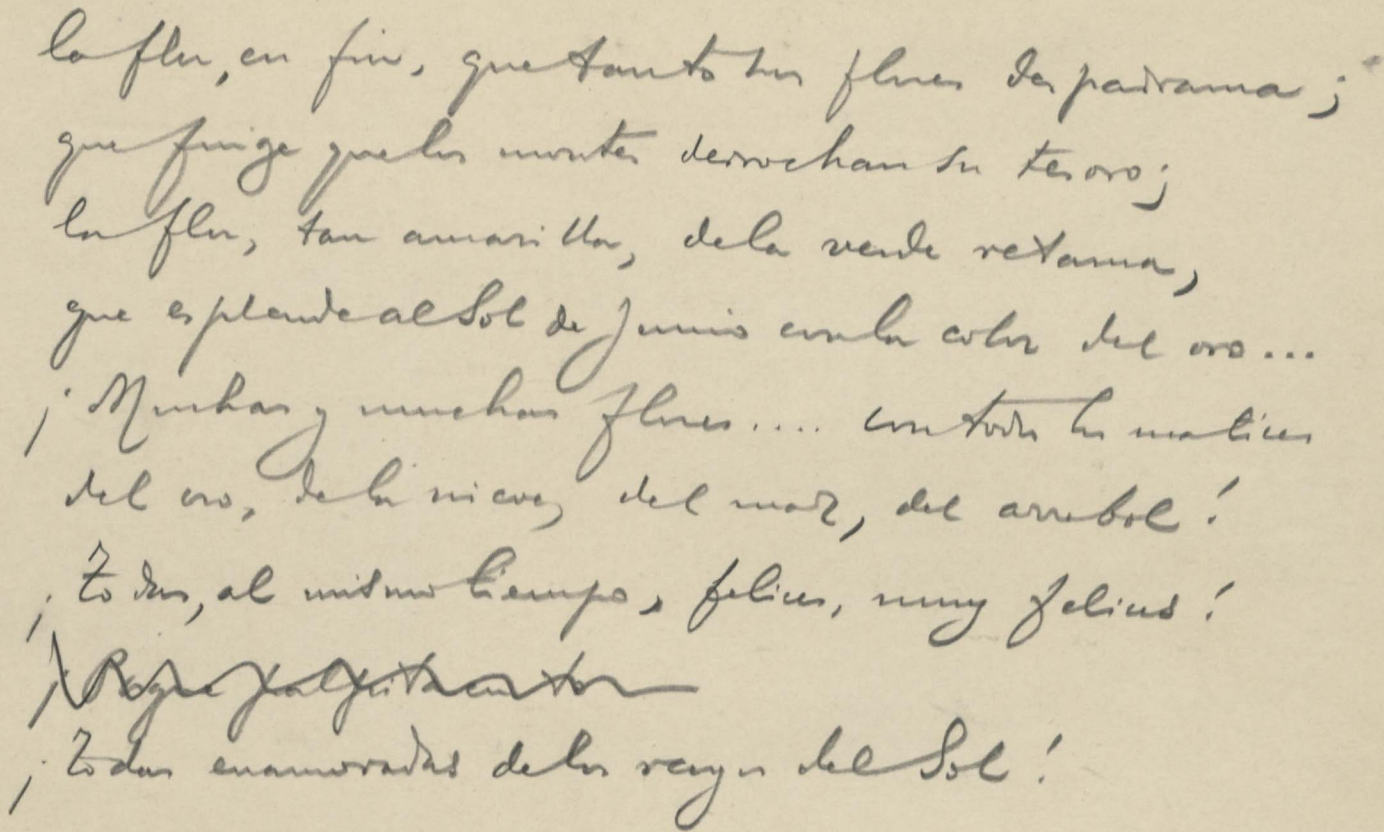 la flor, en fin, que tanto sus flores desparrama;
que finge que los montes derrochan su tesoro;
la flor, tan amarilla, de la verde retama,
que esplende al Sol de Junio con la color del oro...
¡Muchas y muchas flores.... con todos los matices
del oro, de la nieve, del mar, del arrebol!
¡Todas, al mismo tiempo, felices, muy felices!
¡Todas enamoradas de los rayos del Sol!